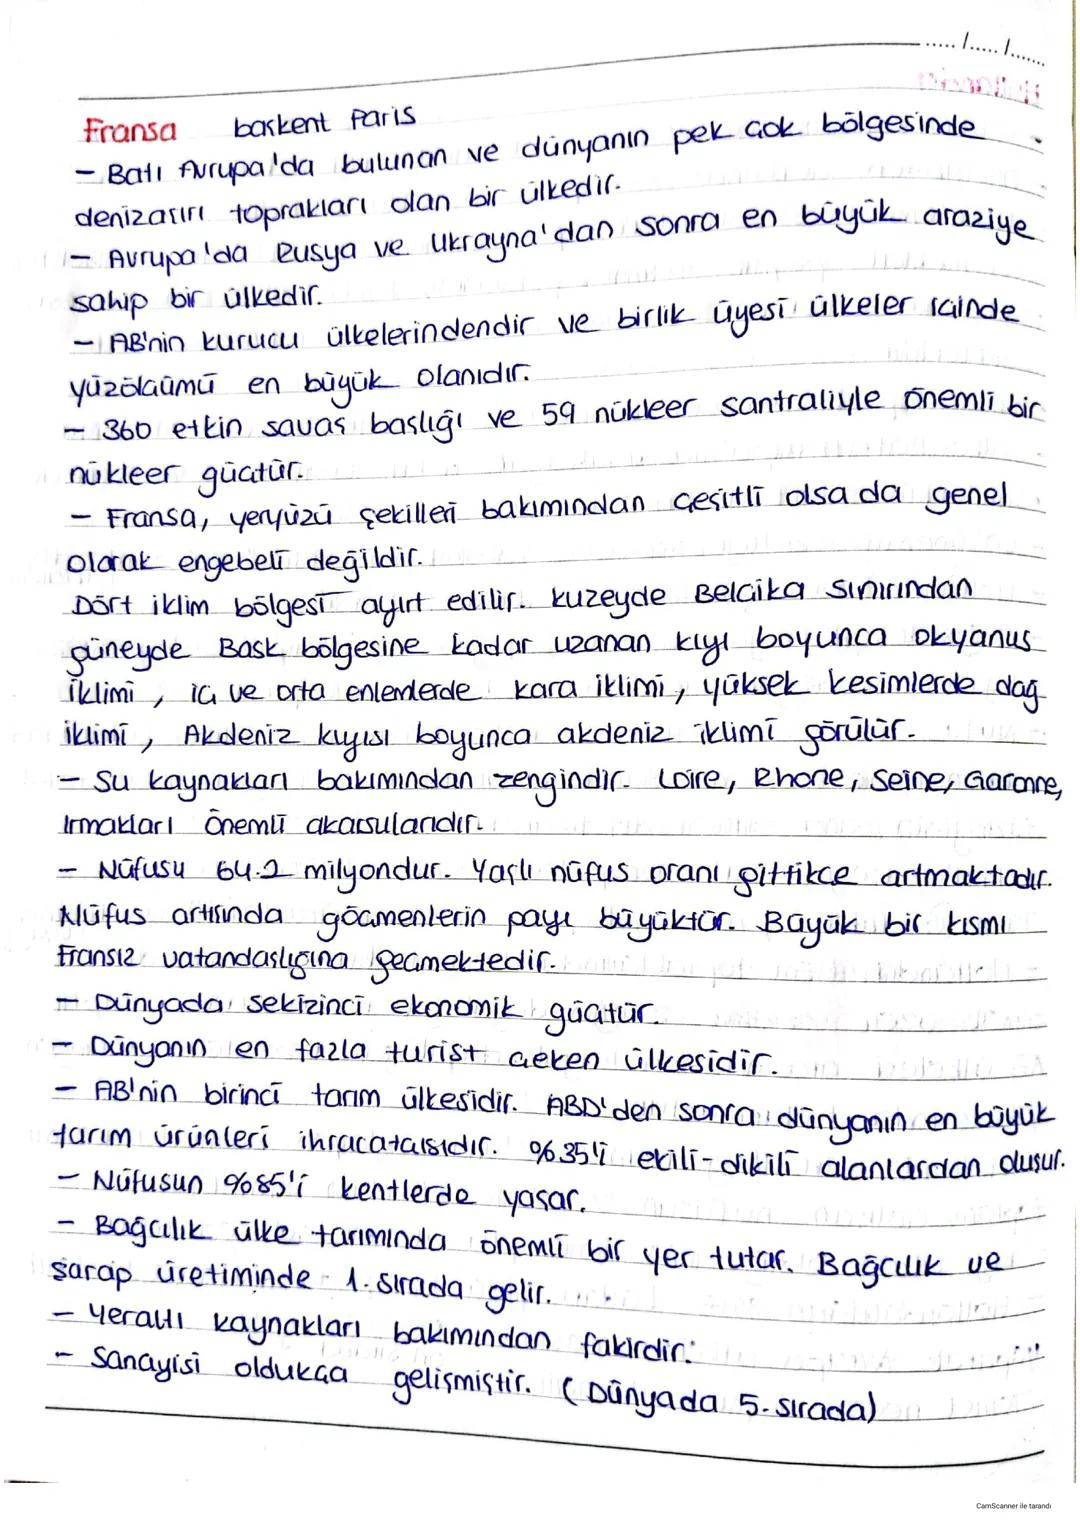 ...../...../.......
Fransa başkent Paris
- Batı Avrupa'da bulunan ve dünyanın pek çok bölgesinde
denizaşırı toprakları olan bir ülkedir.
- Avrupa'da Rusya ve Ukrayna'dan sonra en büyük araziye
sahip bir ülkedir.
- AB'nin kurucu ülkelerindendir ve birlik üyesi ülkeler içinde
yüzölçümü en büyük olanıdır.
- 360 etkin savaş başlığı ve 59 nükleer santraliyle önemli bir
nükleer güçtür.
- Fransa, yeryüzü şekilleri bakımından çeşitli olsa da genel
olarak engebeli değildir.
Dört iklim bölgesi ayırt edilir. Kuzeyde Belçika sınırından
güneyde Bask bölgesine kadar uzanan kıyı boyunca okyanus
iklimi, iç ve orta enlemlerde kara iklimi, yüksek kesimlerde dağ
iklimi, Akdeniz kıyısı boyunca akdeniz iklimi görülür.
- Su kaynakları bakımından zengindir. Loire, Rhone, Seine, Garonne,
Irmakları önemli akarsularıdır.
- Nüfusu 64.2 milyondur. Yaşlı nüfus oranı gittikçe artmaktadır.
Nüfus artışında göçmenlerin payı büyüktür. Büyük bir kısmı
Fransız vatandaşlığına geçmektedir.
- Dünyada sekizinci ekonomik güçtür.
- Dünyanın en fazla turist çeken ülkesidir.
- AB'nin birinci tarım ülkesidir. ABD'den sonra dünyanın en büyük
tarım ürünleri ihracatçısıdır. %35'i ekili-dikili alanlardan oluşur.
- Nüfusun %85'i kentlerde yaşar.
- Bağcılık ülke tarımında önemli bir yer tutar. Bağcılık ve
şarap üretiminde 1. sırada gelir.
- Yeraltı kaynakları bakımından fakirdir.
- Sanayisi oldukça gelişmiştir. (Dünyada 5. sırada)
CamScanner ile tarandı